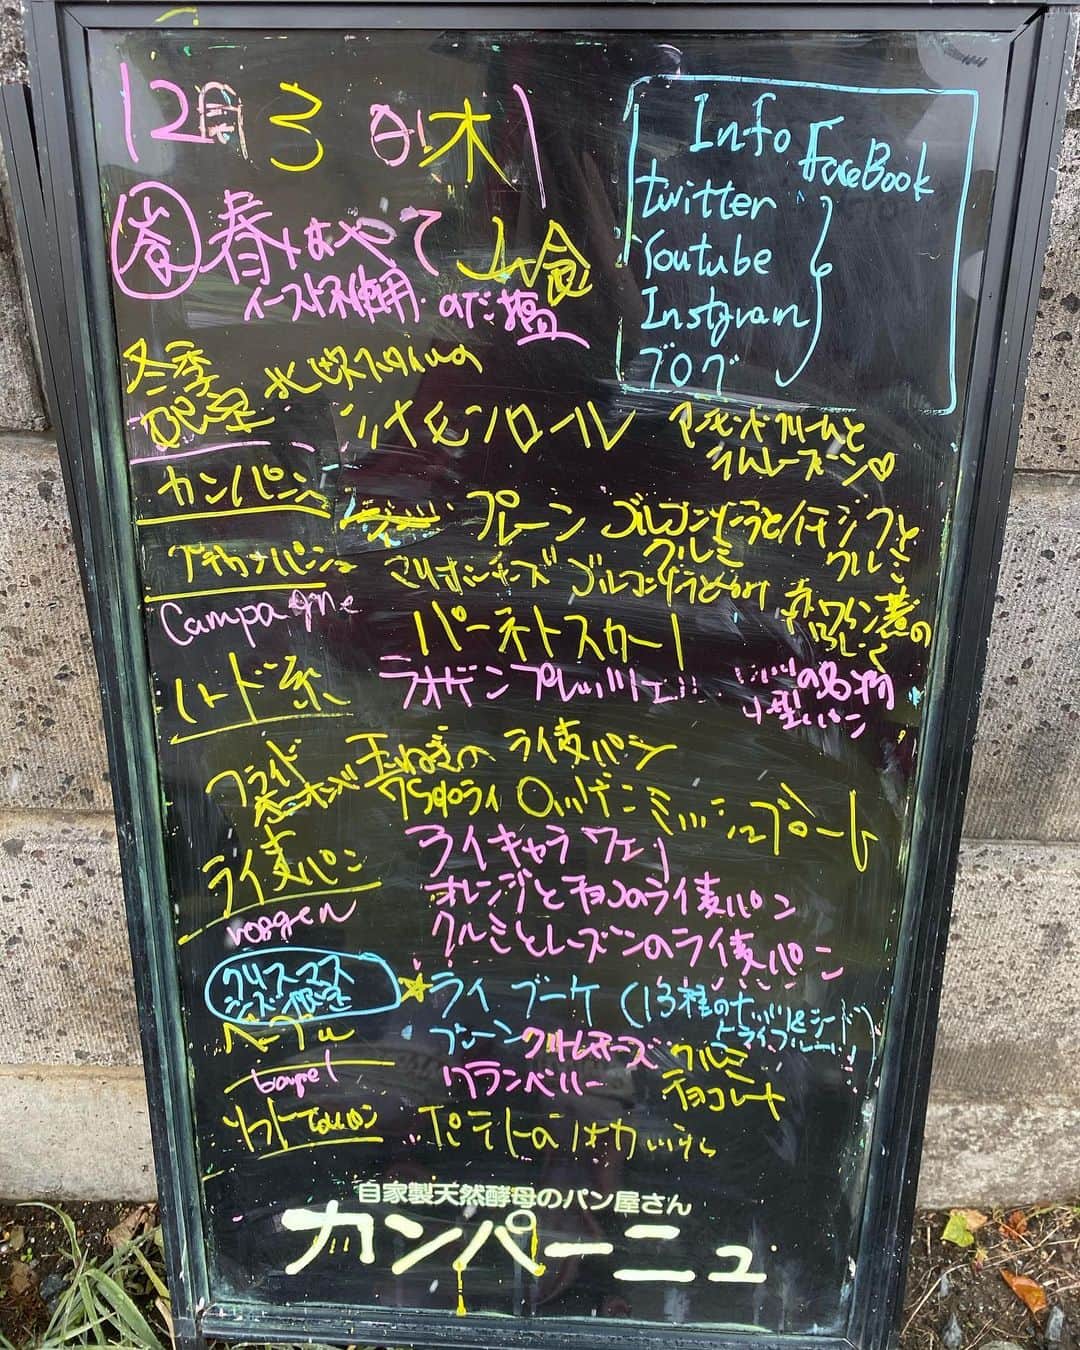 12月3日(木)
Info FaceBook
twitter
Youtube
Instgram
ブログ
春はやて 山食
イースト不使用
冬季
限定 北欧スタイルの
シナモンロール アーモンドクリームと
ラムレーズン♡
カンパーニュ プレーン ゴルゴンゾーラと イチジクと
クルミ クルミ
マリボーチーズ 赤ワイン煮の
いちじく
Campagne パーネトスカーノ
ハード系 ラオゲンプレッツェル!! ドイツの名物
小型パン
フライド
オニオン 玉ねぎのライ麦パン
75%ライ ロッゲンミッシュブロート
ライ麦パン ライキャラウェイ
オレンジとチョコのライ麦パン
roggen クルミとレーズンのライ麦パン
クリスマス
シーズン限定 ★ライブーケ(13種のナッツ&シード
ドライフルーツ)
ベーグル プレーン クリームチーズ クルミ
bagel クランベリー チョコレート
ソフト ポテトのはカいうら
自家製天然酵母のパン屋さん
カンパーニュ